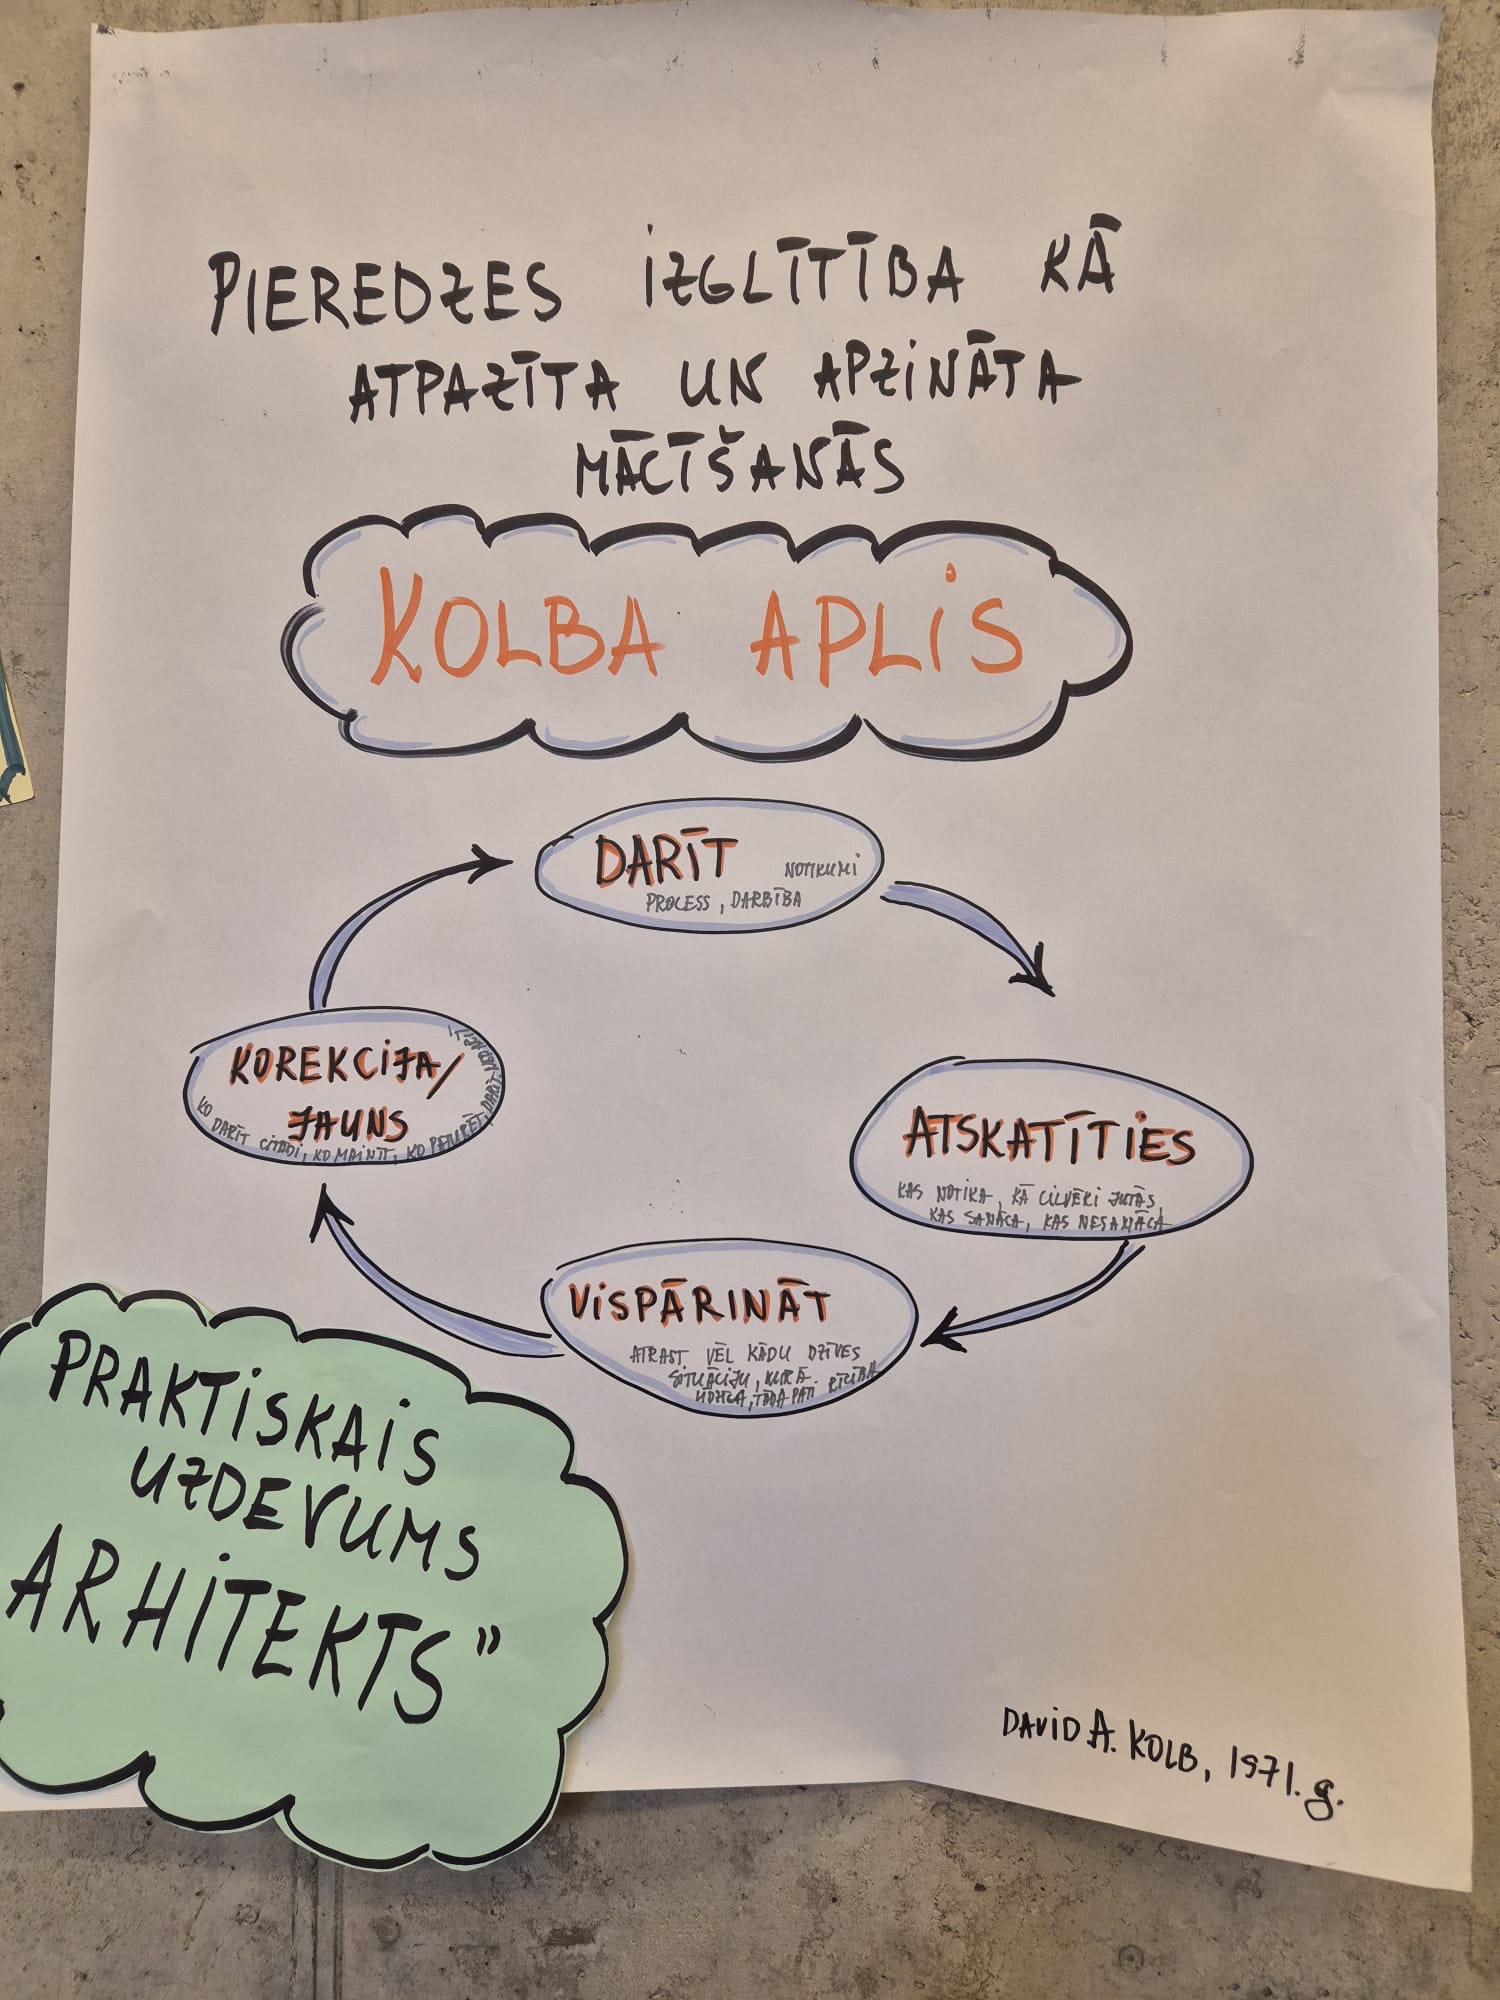 PIEREDZES IZGLĪTĪBA KĀ
ATPAZĪTA UN APZINĀTA
MĀCĪŠANĀS
KOLBA APLIS
DARĪT
NOTIKUMI
PROCESS, DARBĪBA
ATSKATĪTIES
KAS NOTIKA, KĀ CILVĒKI JUTĀS,
KAS SANĀCA, KAS NESANĀCA
VISPĀRINĀT
ATRAST VĒL KĀDU DZĪVES
SITUĀCIJU, KURĀ RĪCĪBA
LĪDZĪGA, TĀDA PATI
KOREKCIJA/
JAUNS
KO DARĪT CITĀDI, KO MAINĪT, KO PATURĒT, DARĪT
PRAKTISKAIS
UZDEVUMS
ARHITEKTS"
DAVID A. KOLB, 1971. g.